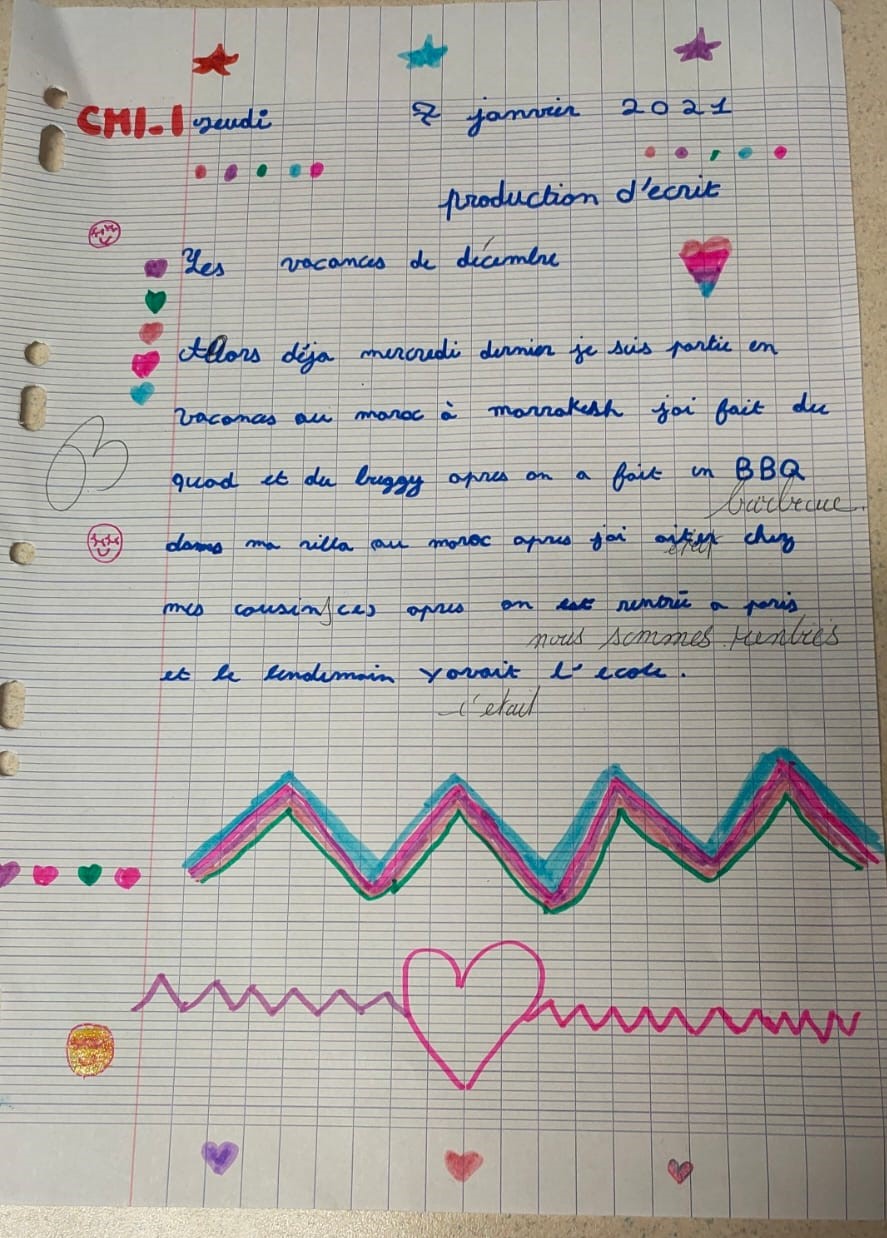 CM1-1 jeudi 7 janvier 2021
production d'ecrit
Les vacances de décembre
Allors déja mercredi dernier je suis partie en
vacances au maroc à marrakesh jai fait du
quad et du buggy apres on a fait un BBQ
barbecue.
dans ma villa au maroc apres jai chez
été
mes cousin(es) apres on est rentrée a paris
nous sommes rentrés
et le lendemain yavait l'ecole.
c'était